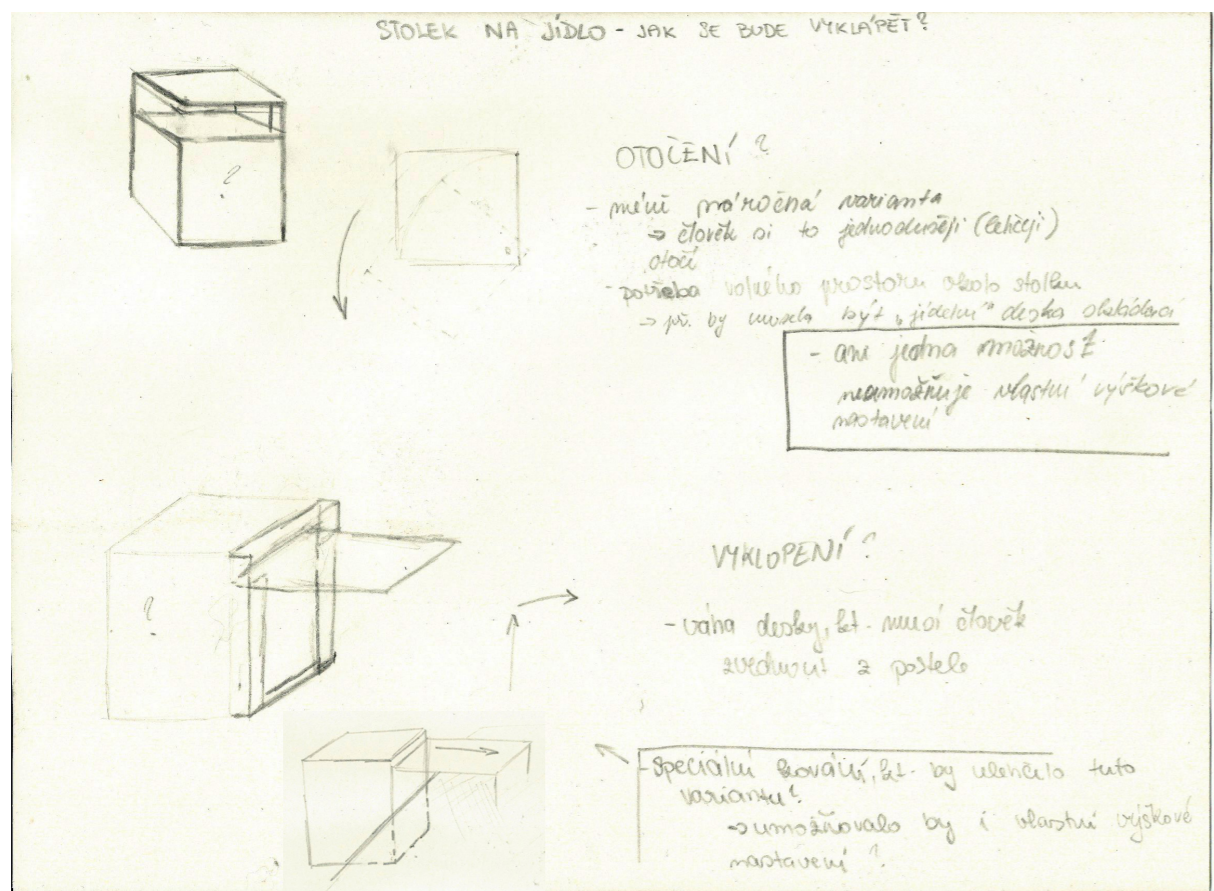 STOLEK NA JÍDLO - JAK SE BUDE VYKLÁPĚT?
?
OTOČENÍ ?
- méně náročná varianta
→ člověk si to jednodušeji (lehčeji)
otočí
- potřeba volného prostoru okolo stolku
→ př. by musela být „jídelní" deska
- ani jedna možnost
neumožňuje vlastní výškové
nastavení
?
VYKLOPENÍ ?
- váha desky, kt. musí člověk
zvednout z postele
- speciální kování, kt. by ulehčilo tuto
variantu?
→ umožňovalo by i vlastní výškové
nastavení ?